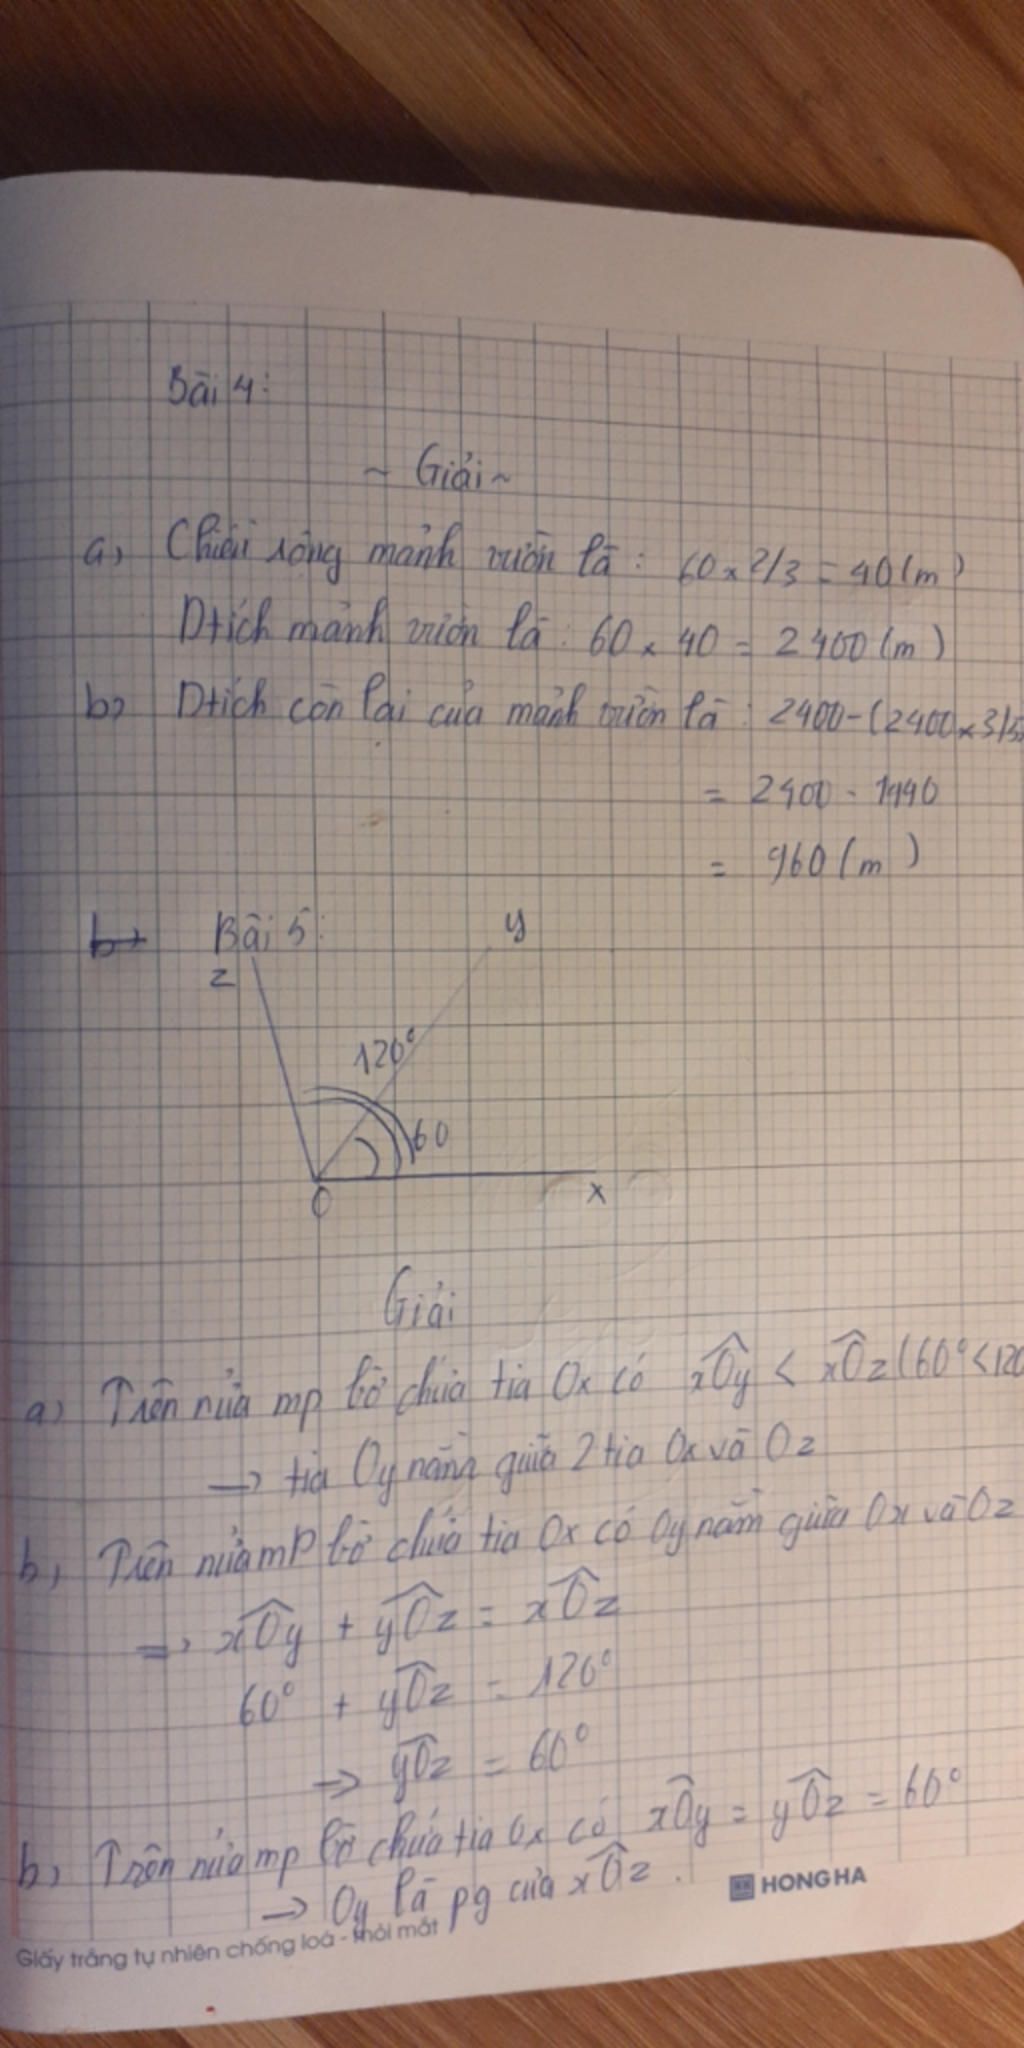 Bài 4:
~ Giải ~
a, Chiều rộng mảnh vườn là: 60 x 2/3 = 40 (m)
Dtích mảnh vườn là: 60 x 40 = 2400 (m )
b, Dtích còn lại của mảnh vườn là: 2400 - (2400 x 3/5)
= 2400 - 1440
= 960 (m )
Bài 5:
z
y
120°
60
O
x
Giải
a) Trên nửa mp bờ chứa tia Ox có xÔy < xÔz (60° < 120
→ tia Oy nằm giữa 2 tia Ox và Oz
b, Trên nửa mp bờ chứa tia Ox có Oy nằm giữa Ox và Oz
=> xÔy + yÔz = xÔz
60° + yÔz = 120°
→ yÔz = 60°
b, Trên nửa mp bờ chứa tia Ox có xÔy = yÔz = 60°
→ Oy là pg của xÔz.
HONG HA
Giấy trắng tự nhiên chống loá - mỏi mắt